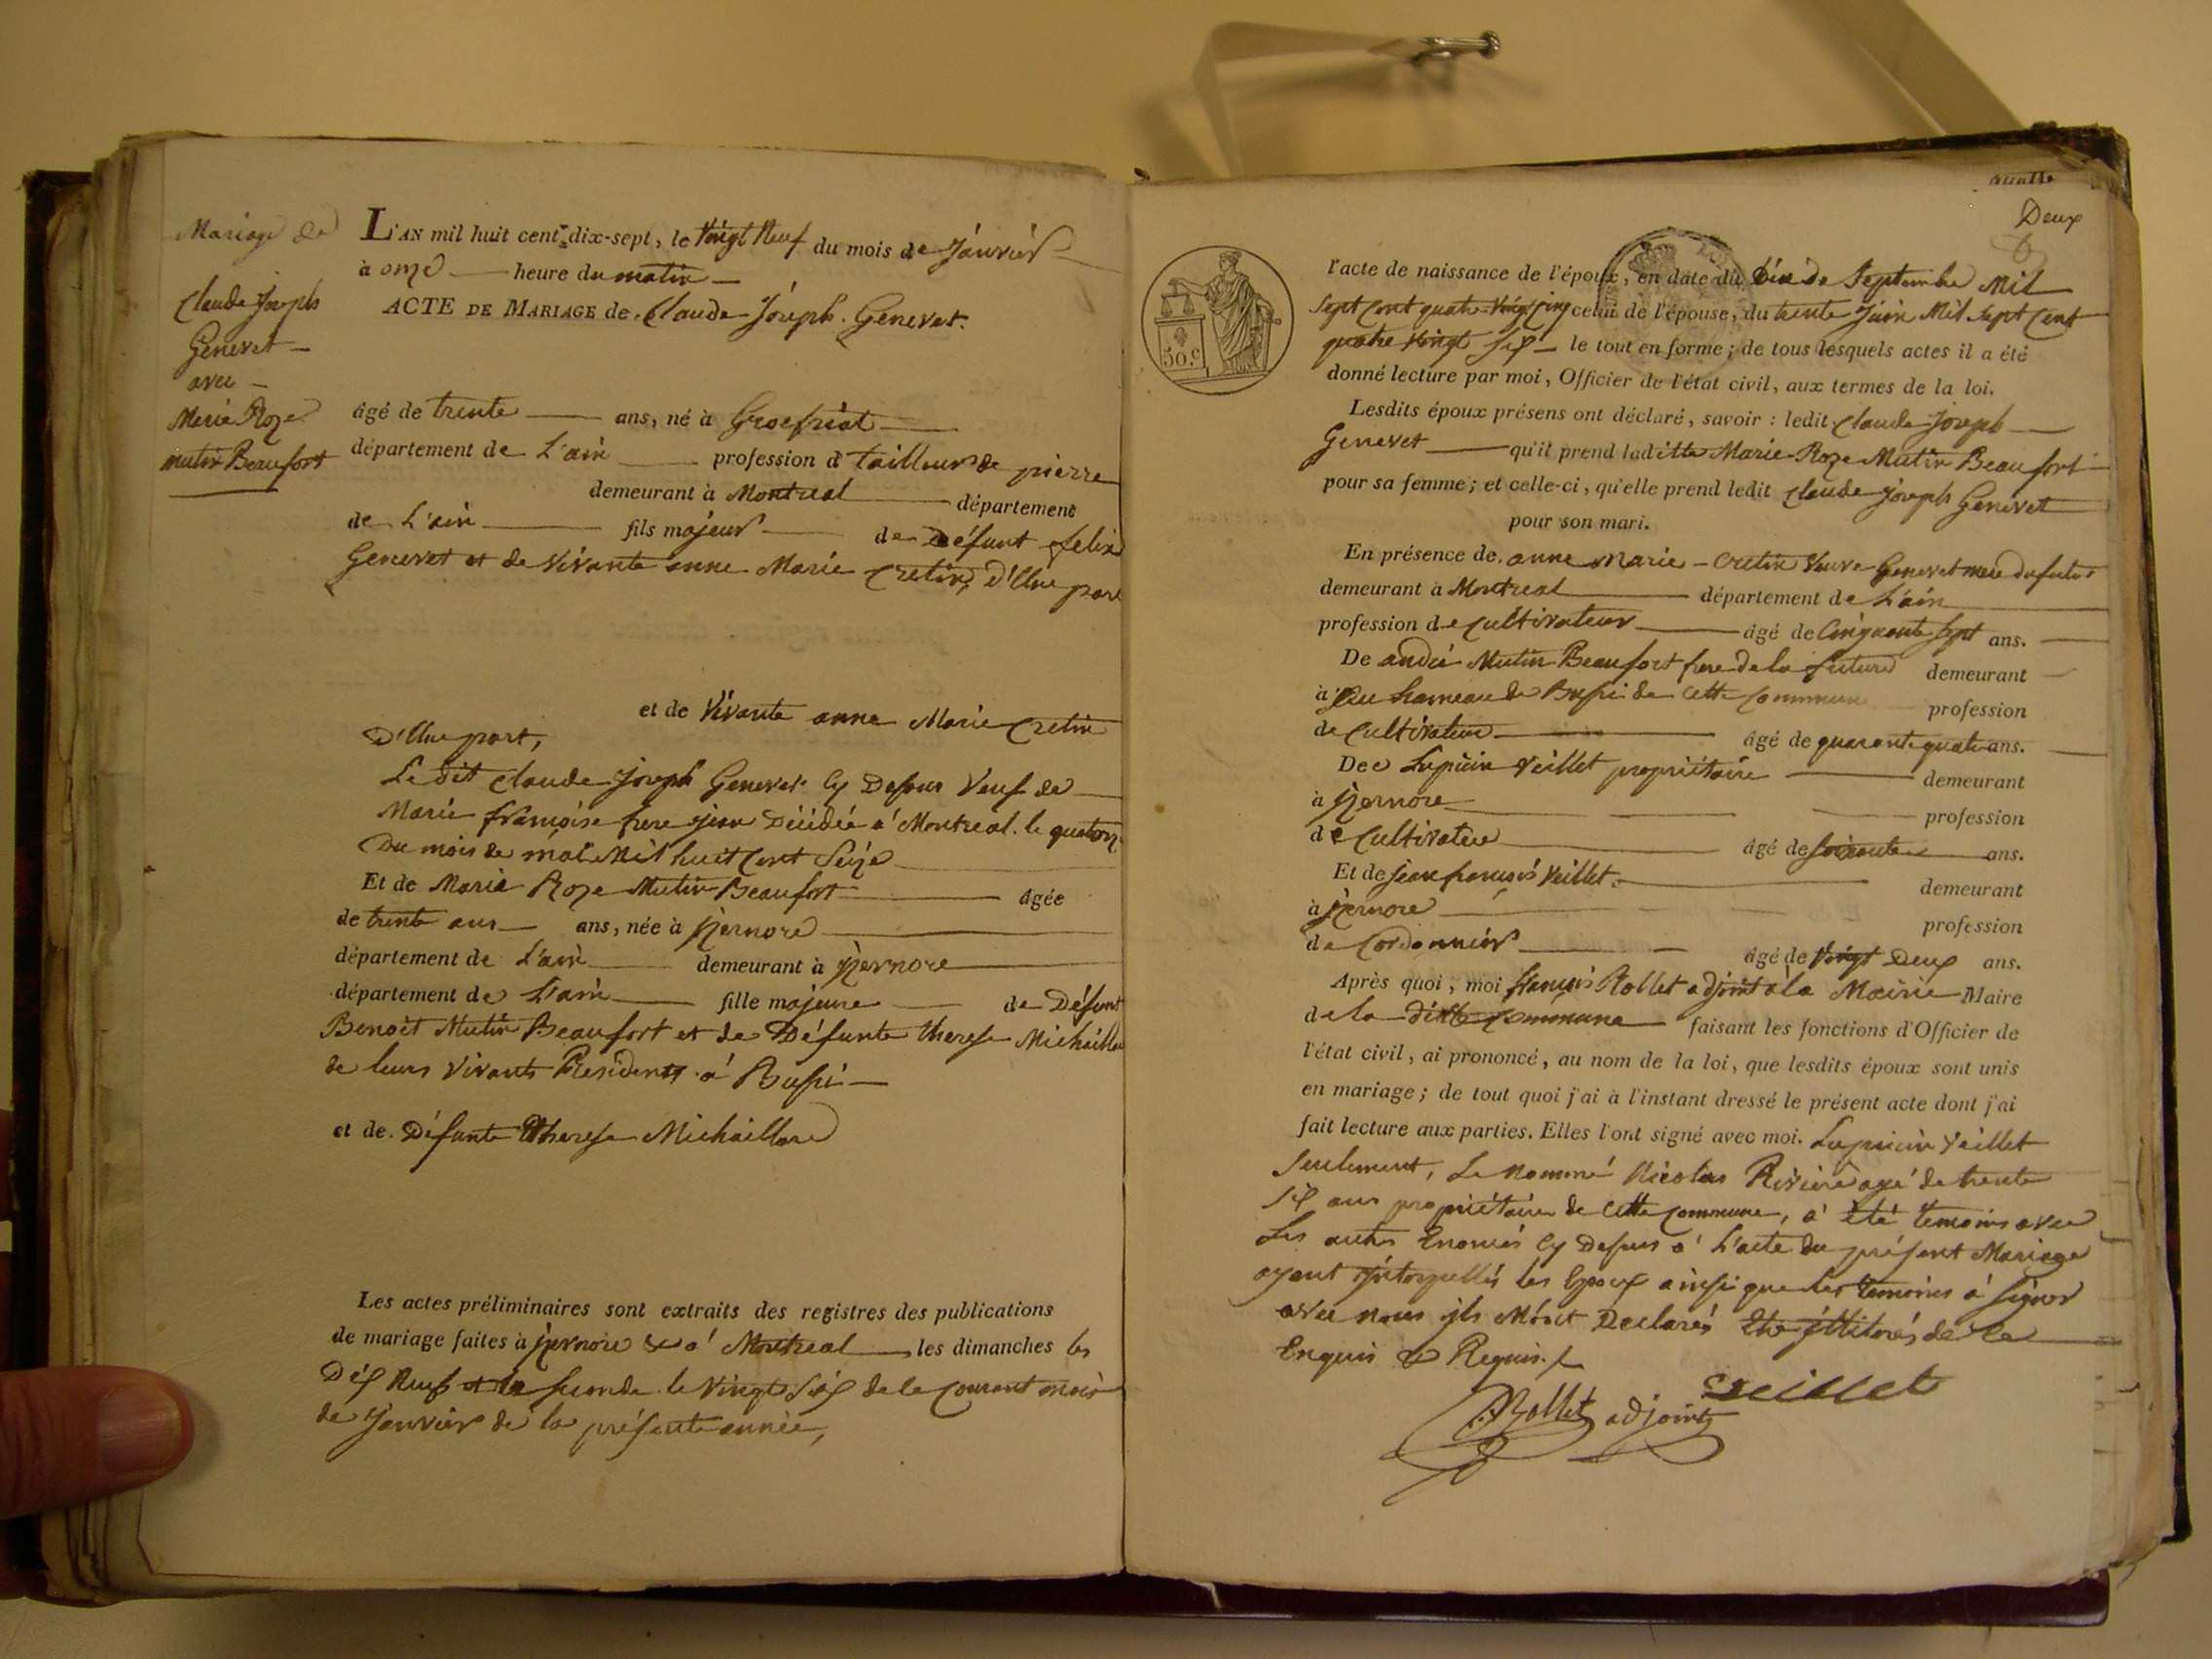 Mariage de
Claude Joseph
Genevet
avec
Marie Roze
mutin Beaufort
L'AN mil huit cent dix-sept, le Vingt Neuf du mois de Janvier
à onze heure du matin
ACTE DE MARIAGE de Claude Joseph Genevet.
âgé de trente ans, né à Groissiat
département de L'ain profession d tailleur de pierre
demeurant à Montreal département
de L'ain fils majeur de Défunt felix
Genevet et de Vivante anne Marie Cretin, d'Une part
et de Vivante anne Marie Cretin
D'Une part,
Le dit Claude Joseph Genevet Cy Dessus Veuf de
Marie françoise Décédée a' Montreal le quatorze
Du mois de mai Mil huit Cent Seize
Et de Marie Roze Mutin Beaufort âgée
de trente ans ans, née à jzernore
département de L'ain demeurant à jzernore
département de L'ain fille majeure de Défunt
Benoit Mutin Beaufort et de Défunte therese Michaillard
de leurs Vivants Residents a' Bussi
et de Défunte therese Michaillard
Les actes préliminaires sont extraits des registres des publications
de mariage faites à jzernore & a' Montreal, les dimanches les
Dix Neuf et la seconde le Vingt Six de le Courant mois
de Janvier de la présente année,
feuille
Deux
50.c
l'acte de naissance de l'époux, en date du Dix de Septembre Mil
Sept Cent quatre Vingt Cinq celui de l'épouse, du trente Juin Mil Sept Cent
quatre Vingt Six le tout en forme; de tous lesquels actes il a été
donné lecture par moi, Officier de l'état civil, aux termes de la loi.
Lesdits époux présens ont déclaré, savoir : ledit Claude Joseph
Genevet qu'il prend laditte Marie Roze Mutin Beaufort
pour sa femme; et celle-ci, qu'elle prend ledit Claude Joseph Genevet
pour son mari.
En présence de anne marie Cretin Veuve Genevet mere du futur
demeurant à Montreal département de L'ain
profession de Cultivateur âgé de Cinquante Sept ans.
De andré Mutin Beaufort frere de la future demeurant
à au hameau de Bussi de cette Commune profession
de Cultivateur âgé de quarante quatre ans.
Dee Lupicin Veillet propriétaire demeurant
à jzernore profession
de Cultivateur âgé de soixante ans.
Et de jean françois Veillet demeurant
à jzernore profession
de Cordonnier âgé de Vingt Deux ans.
Après quoi, moi françois Rollet adjoint à la Mairie Maire
de la ditte Commune faisant les fonctions d'Officier de
l'état civil, ai prononcé, au nom de la loi, que lesdits époux sont unis
en mariage; de tout quoi j'ai à l'instant dressé le présent acte dont j'ai
fait lecture aux parties. Elles l'ont signé avec moi. Lupicin Veillet
Seulement, Le nommé Nicolas Riviere agé de trente
Six ans propriétaire de cette Commune, a' été temoins avec
Les autres Enoncés Cy Dessus a' L'acte du présent Mariage
ayant jnterpellés les Epoux ainsi que les temoins a' signer
avec nous jls M'ont Declarés Etre jllitérés de ce
Enquis & Requis.
Rollet adjoint
Veillet